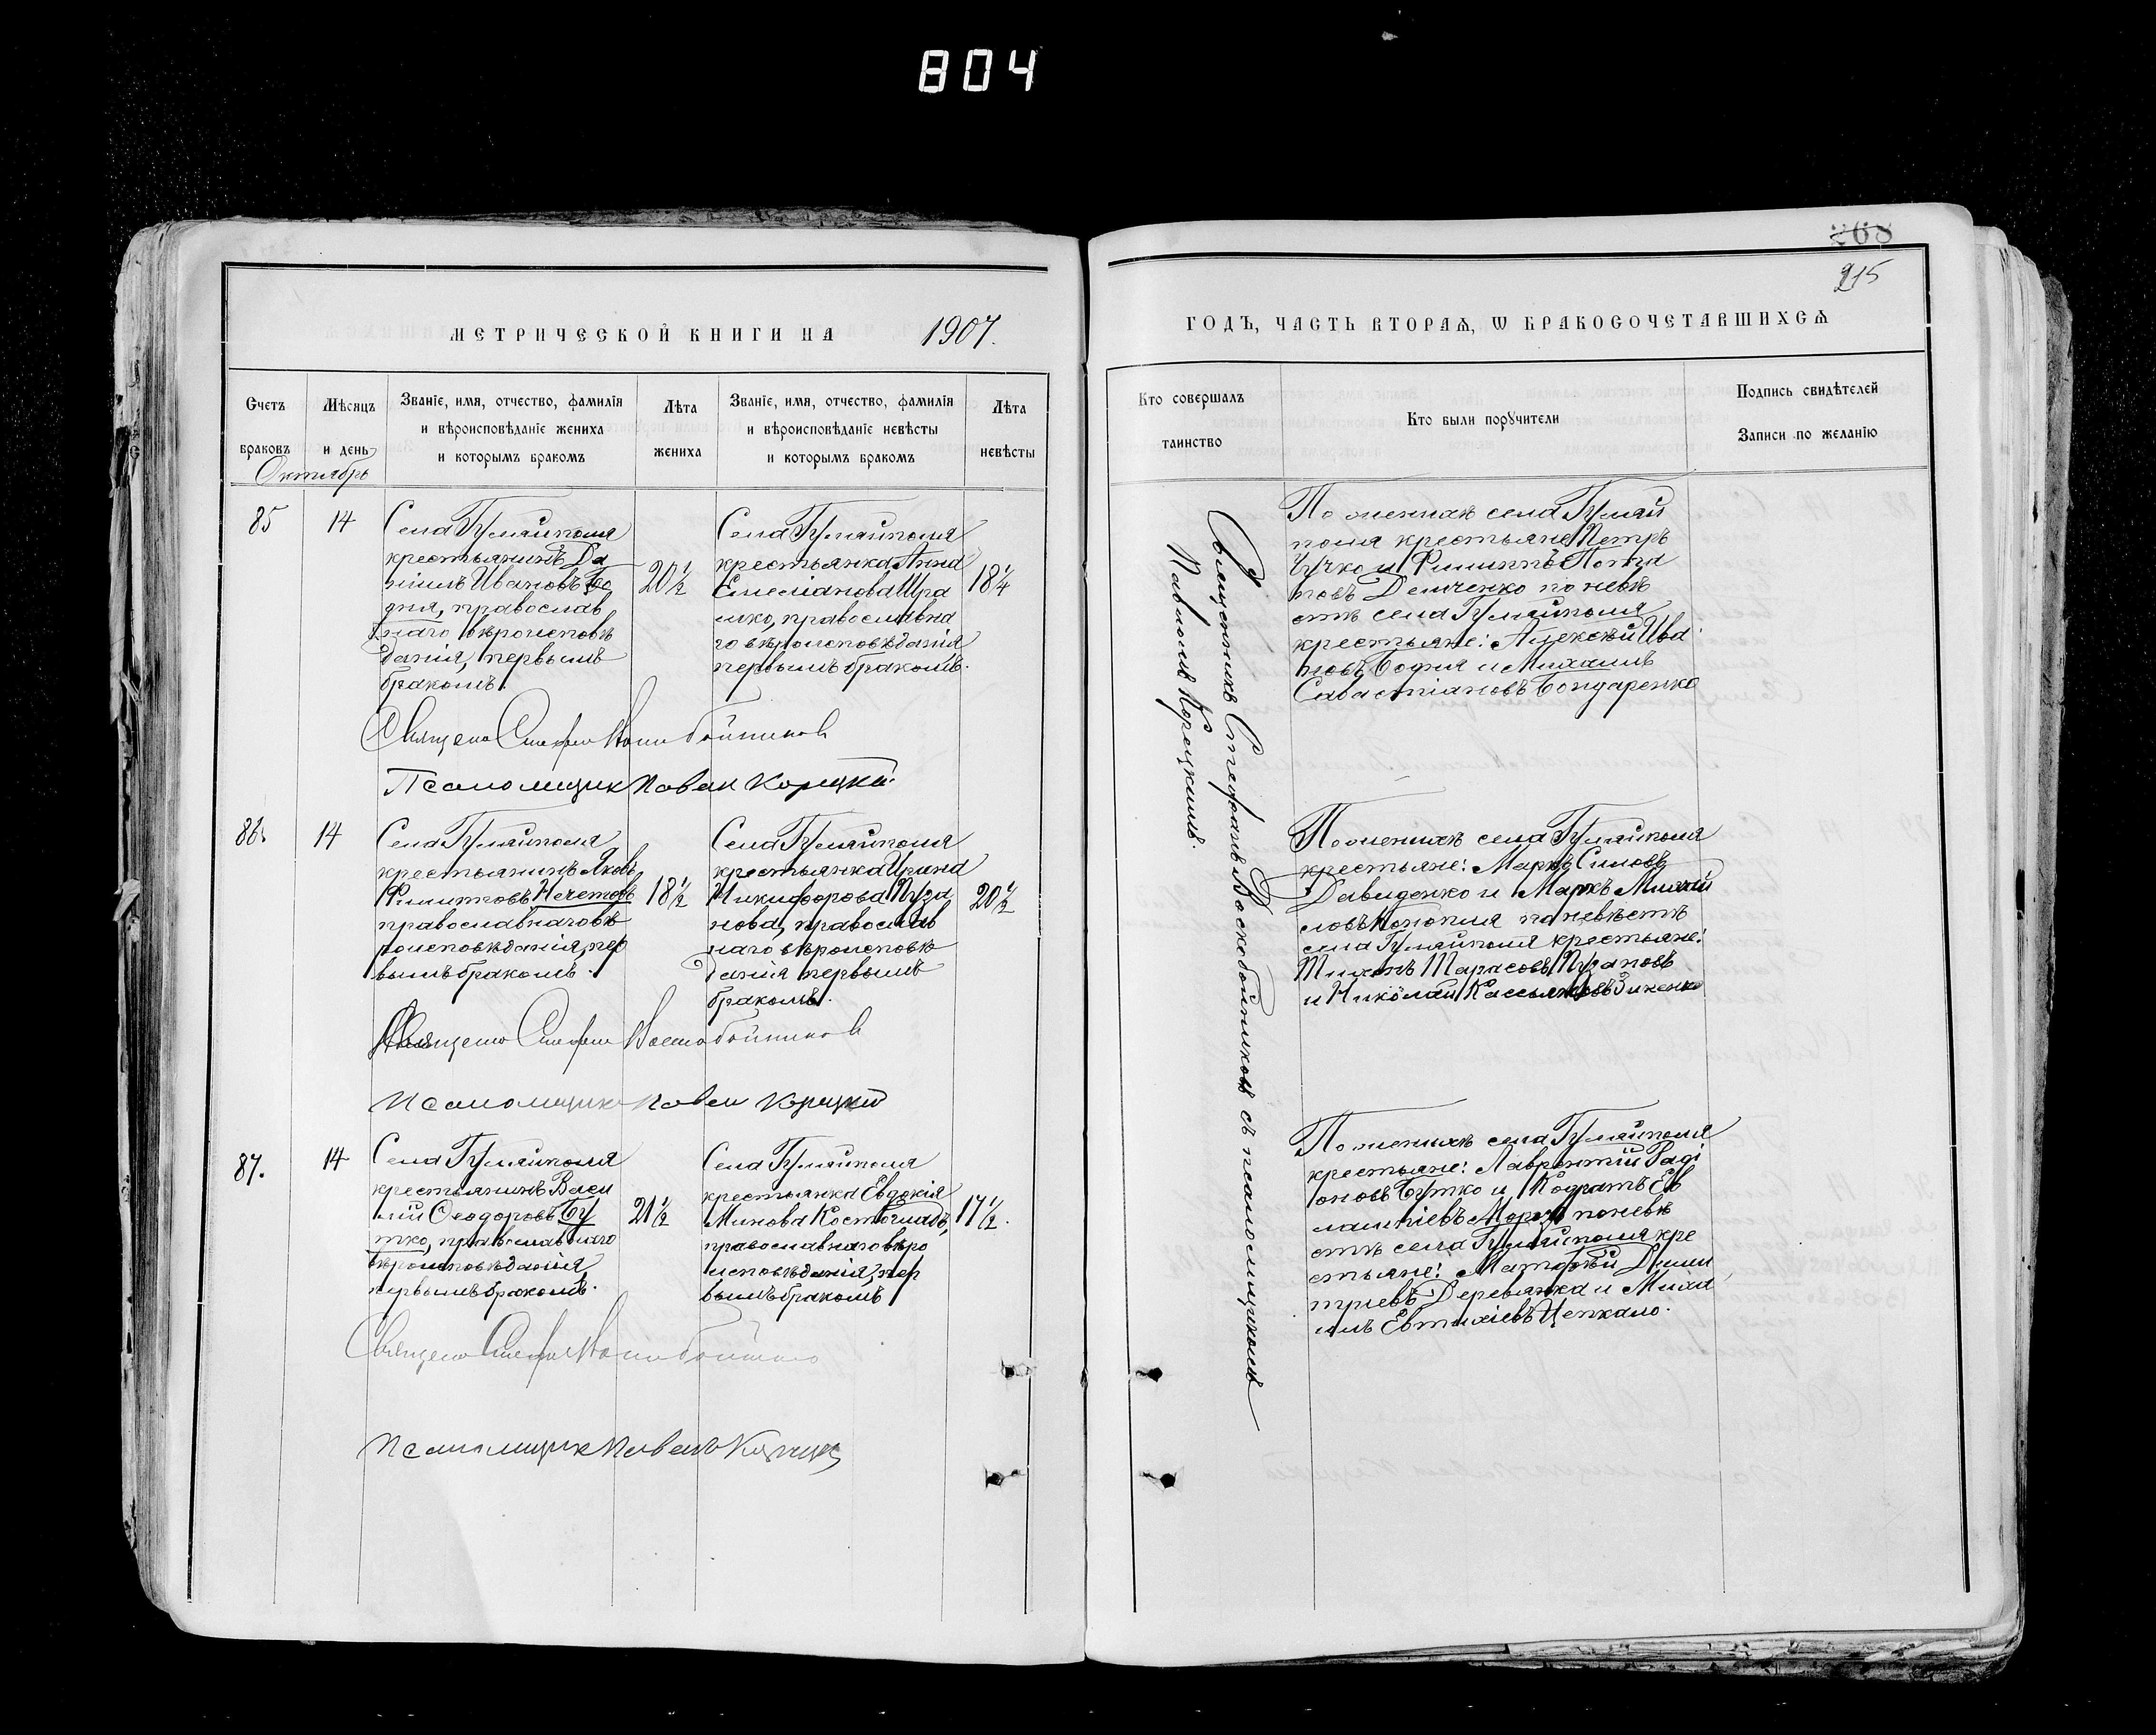 804
268
215
МЕТРИЧЕСКОЙ КНИГИ НА 1907.
ГОДЪ, ЧАСТЬ ВТОРАЯ, Ѡ БРАКОСОЧЕТАВШИХСЯ
Счетъ браковъ
Мѣсяцъ и день
Званіе, имя, отчество, фамилія и вѣроисповѣданіе жениха и которымъ бракомъ
Лѣта жениха
Званіе, имя, отчество, фамилія и вѣроисповѣданіе невѣсты и которымъ бракомъ
Лѣта невѣсты
Кто совершалъ таинство
Кто были поручители
Подпись свидѣтелей записи по желанію
Октябрь
85
14
Села Гуляйполя
крестьянинъ Да
ніилъ Ивановъ Бо
дня, православ
наго вѣроисповѣ
данія, первымъ
бракомъ.
20 1/2
Села Гуляйполя
крестьянка Анна
Емеліанова Шра
мко, православна
го вѣроисповѣданія
первымъ бракомъ.
18 1/4
По женихѣ села Гуляй
поля крестьяне Петръ
Чучко и Филиппъ Пота
повъ Демченко по невѣ
стѣ села Гуляйполя
крестьяне: Алексѣй Ива
новъ Бодня и Михаилъ
Савастіановъ Бондаренко
Псаломщик Павел Корецкій.
86.
14
Села Гуляйполя
крестьянинъ Яковъ
Филипповъ Нечетовъ
православнаго вѣ
роисповѣданія, пер
вымъ бракомъ.
18 1/2
Села Гуляйполя
крестьянка Ирина
Никифорова Пуза
нова, православ
наго вѣроисповѣ
данія первымъ
бракомъ.
20 1/2
По женихѣ села Гуляйполя
крестьяне: Маркъ Симовъ
Давиденко и Маркъ Михай
ловъ Конопля по невѣстѣ
села Гуляйполя крестьяне:
Тихонъ Тарасовъ Пузановъ
и Николай Кассьяновъ Зиненко
Псаломщикъ Павел Корецкій
87.
14
Села Гуляйполя
крестьянинъ Васи
лій Ѳеодоровъ Бу
тко, православнаго
вѣроисповѣданія
первымъ бракомъ.
21 1/2
Села Гуляйполя
крестьянка Евдокія
Минова Костоглодъ,
православнаго вѣро
исповѣданія, пер
вымъ бракомъ
17 1/2.
По женихѣ села Гуляйполя
крестьяне: Лаврентій Раді
оновъ Бутко и Кодратъ Ев
лампіевъ Мороз по невѣ
стѣ села Гуляйполя кре
стьяне: Матѳѣй Дими
тріевъ Деревянка и Миха
илъ Евтихіевъ Цепкало.
Псаломщик Павелъ Корецкій
Священникъ Стефанъ Воскобойниковъ съ псаломщикомъ
Павломъ Корецкимъ.